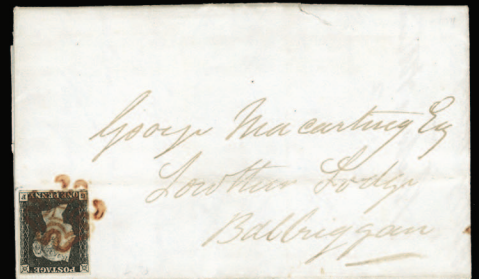 George Macartney Esq
Lowther Lodge
Balbriggan
POSTAGE
ONE PENNY